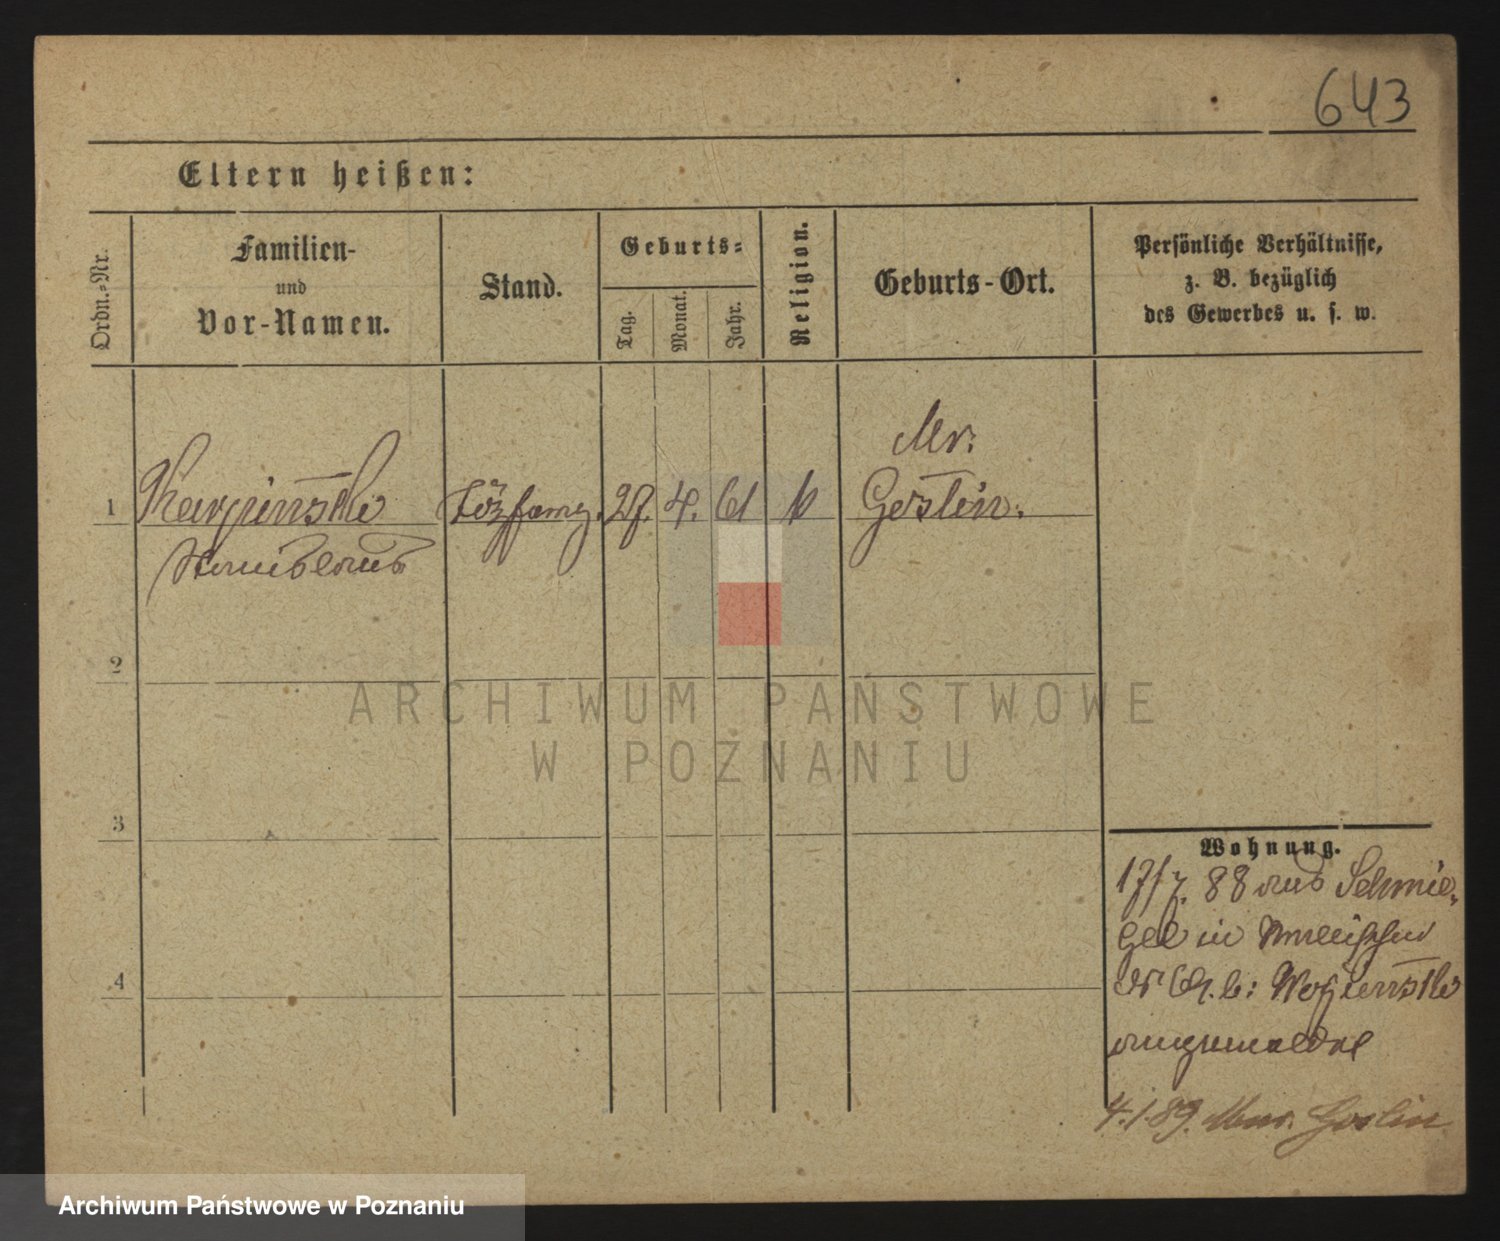 643
Eltern heißen:
Ordn.-Nr.
Familien-
und
Vor-Namen.
Stand.
Geburts-
Tag.
Monat.
Jahr.
Religion.
Geburts-Ort.
Persönliche Verhältnisse,
z. B. bezüglich
des Gewerbes u. s. w.
1
Karpinski
27. 4. 61
k
Mr.
Goslin.
Stanislaus
2
ARCHIWUM PAŃSTWOWE
W POZNANIU
3
Wohnung.
17/7. 88 aus Schmie-
gel in
angemeldet
4
4.1.89. Mur. Goslin
Archiwum Państwowe w Poznaniu